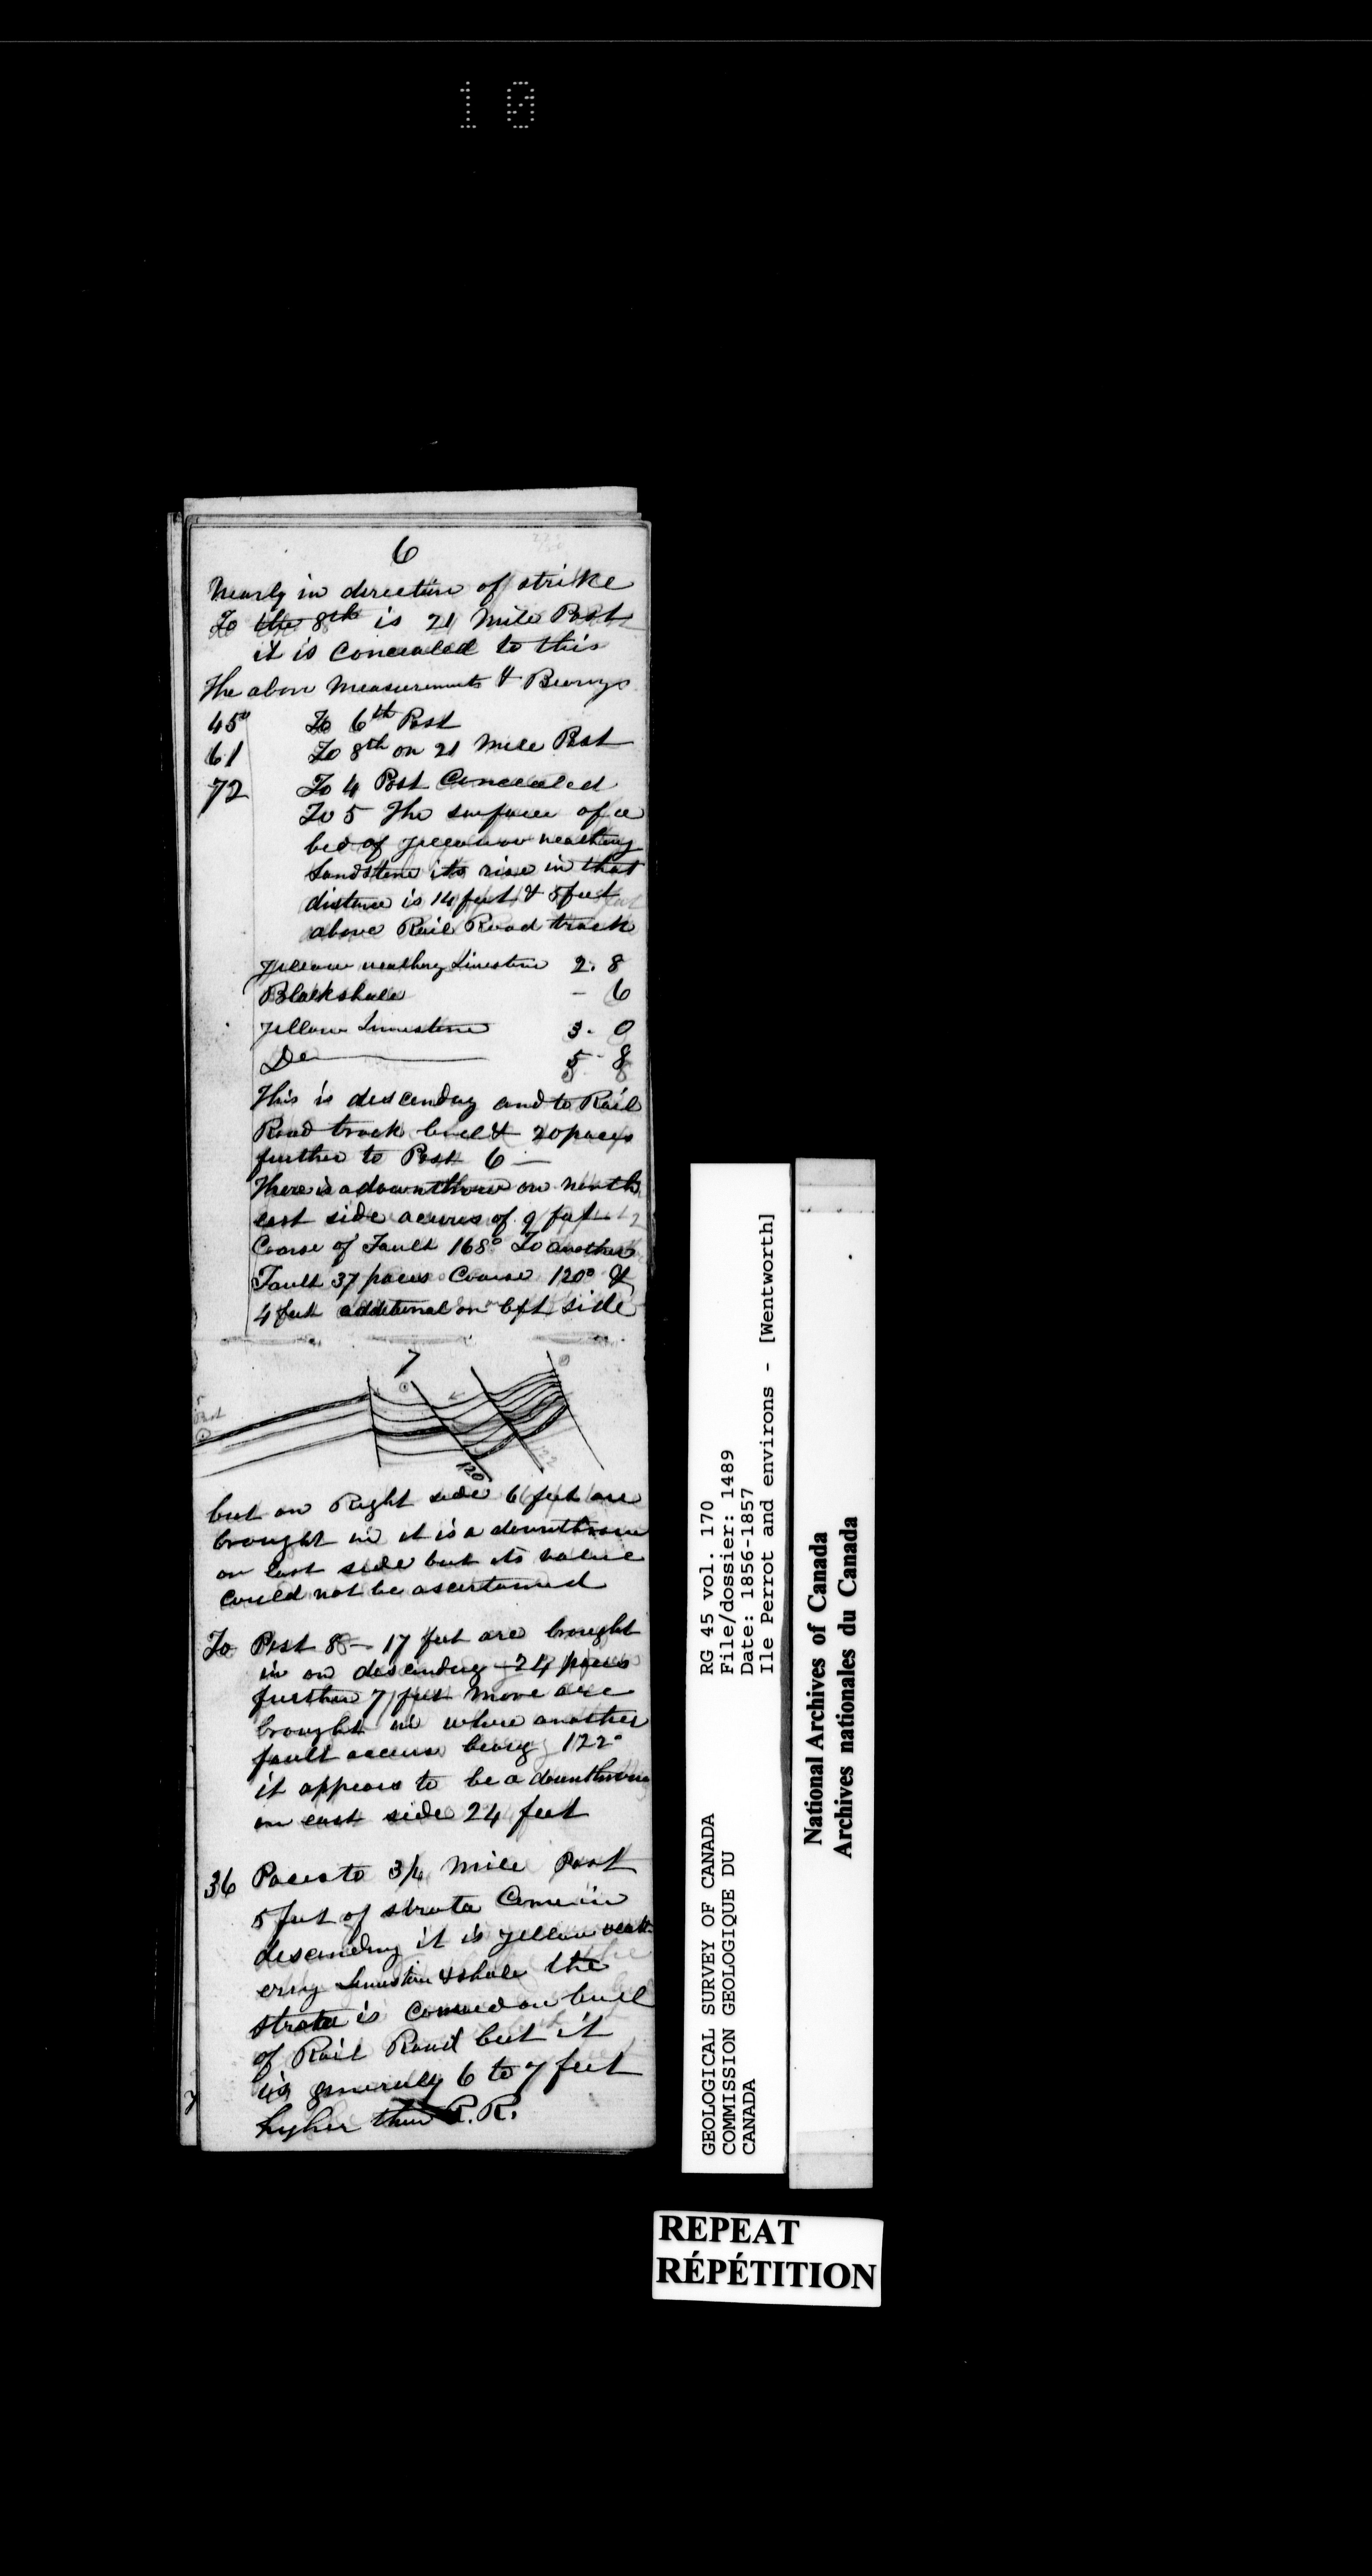 10
6
Nearly in direction of strike
To the 8th is 21 Mile Post
it is Concealed to this
The above Measurements & Bearings
45° To 6th Post
61 To 8th or 21 Mile Post
72 To 4 Post Concealed
To 5 The surface of a
bed of yellow weathering
Sandstone its rise in that
distance is 14 feet & 5 feet
above Rail Road track
Yellow weathering Limestone 2. 8
Black shale - 6
Yellow Limestone 3. 0
Do 5 - 8
This is descending and to Rail
Road track level & 20 paces
further to Post 6 —
There is a downthrow on north
east side occurs of 9 feet
Course of Fault 168° To another
Fault 37 paces Course 120° &
4 feet additional on left side
7
5
Post
120
122
but on Right side 6 feet are
brought in it is a downthrow
on east side but its value
could not be ascertained
To Post 8 — 17 feet are brought
in on descending - 24 paces
further 7 feet more are
brought in where another
fault occurs bearing 122°
it appears to be a downthrow
on east side 24 feet
36 Paces to 3/4 Mile Post
5 feet of strata Come in
descending it is yellow weath-
ering limestone & shale the
strata is on level
of Rail Road but it
is generally 6 to 7 feet
higher than R.R.
RG 45 vol. 170
File/dossier: 1489
Date: 1856-1857
Ile Perrot and environs - [Wentworth]
GEOLOGICAL SURVEY OF CANADA
COMMISSION GEOLOGIQUE DU
CANADA
National Archives of Canada
Archives nationales du Canada
REPEAT
RÉPÉTITION